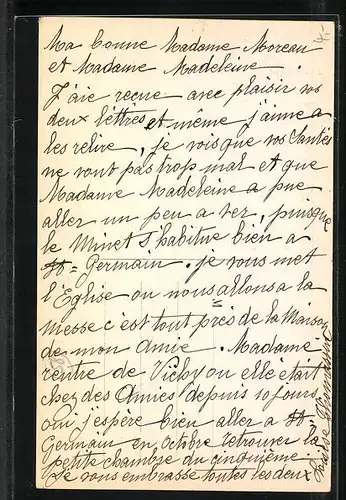 Ma bonne Madame Moreau
et Madame Madeleine.
J'aie reçue avec plaisir vos
deux lettres et même j'aime a
les relire, je vois que vos Santés
ne vont pas trop mal et que
Madame Madeleine a pue
aller un peu a ver, puisque
le Minet s'habitue bien a
St = Germain. je vous met
l'Eglise ou nous allons a la
messe c'est tout près de la Maison
de mon Amie. Madame
rentre de Vichy ou elle était
chez des Amies depuis 10 jours
oui j'espère bien aller a St
Germain en Octobre retrouver la
petite chambre du cinquième
Je vous embrasse toutes les deux